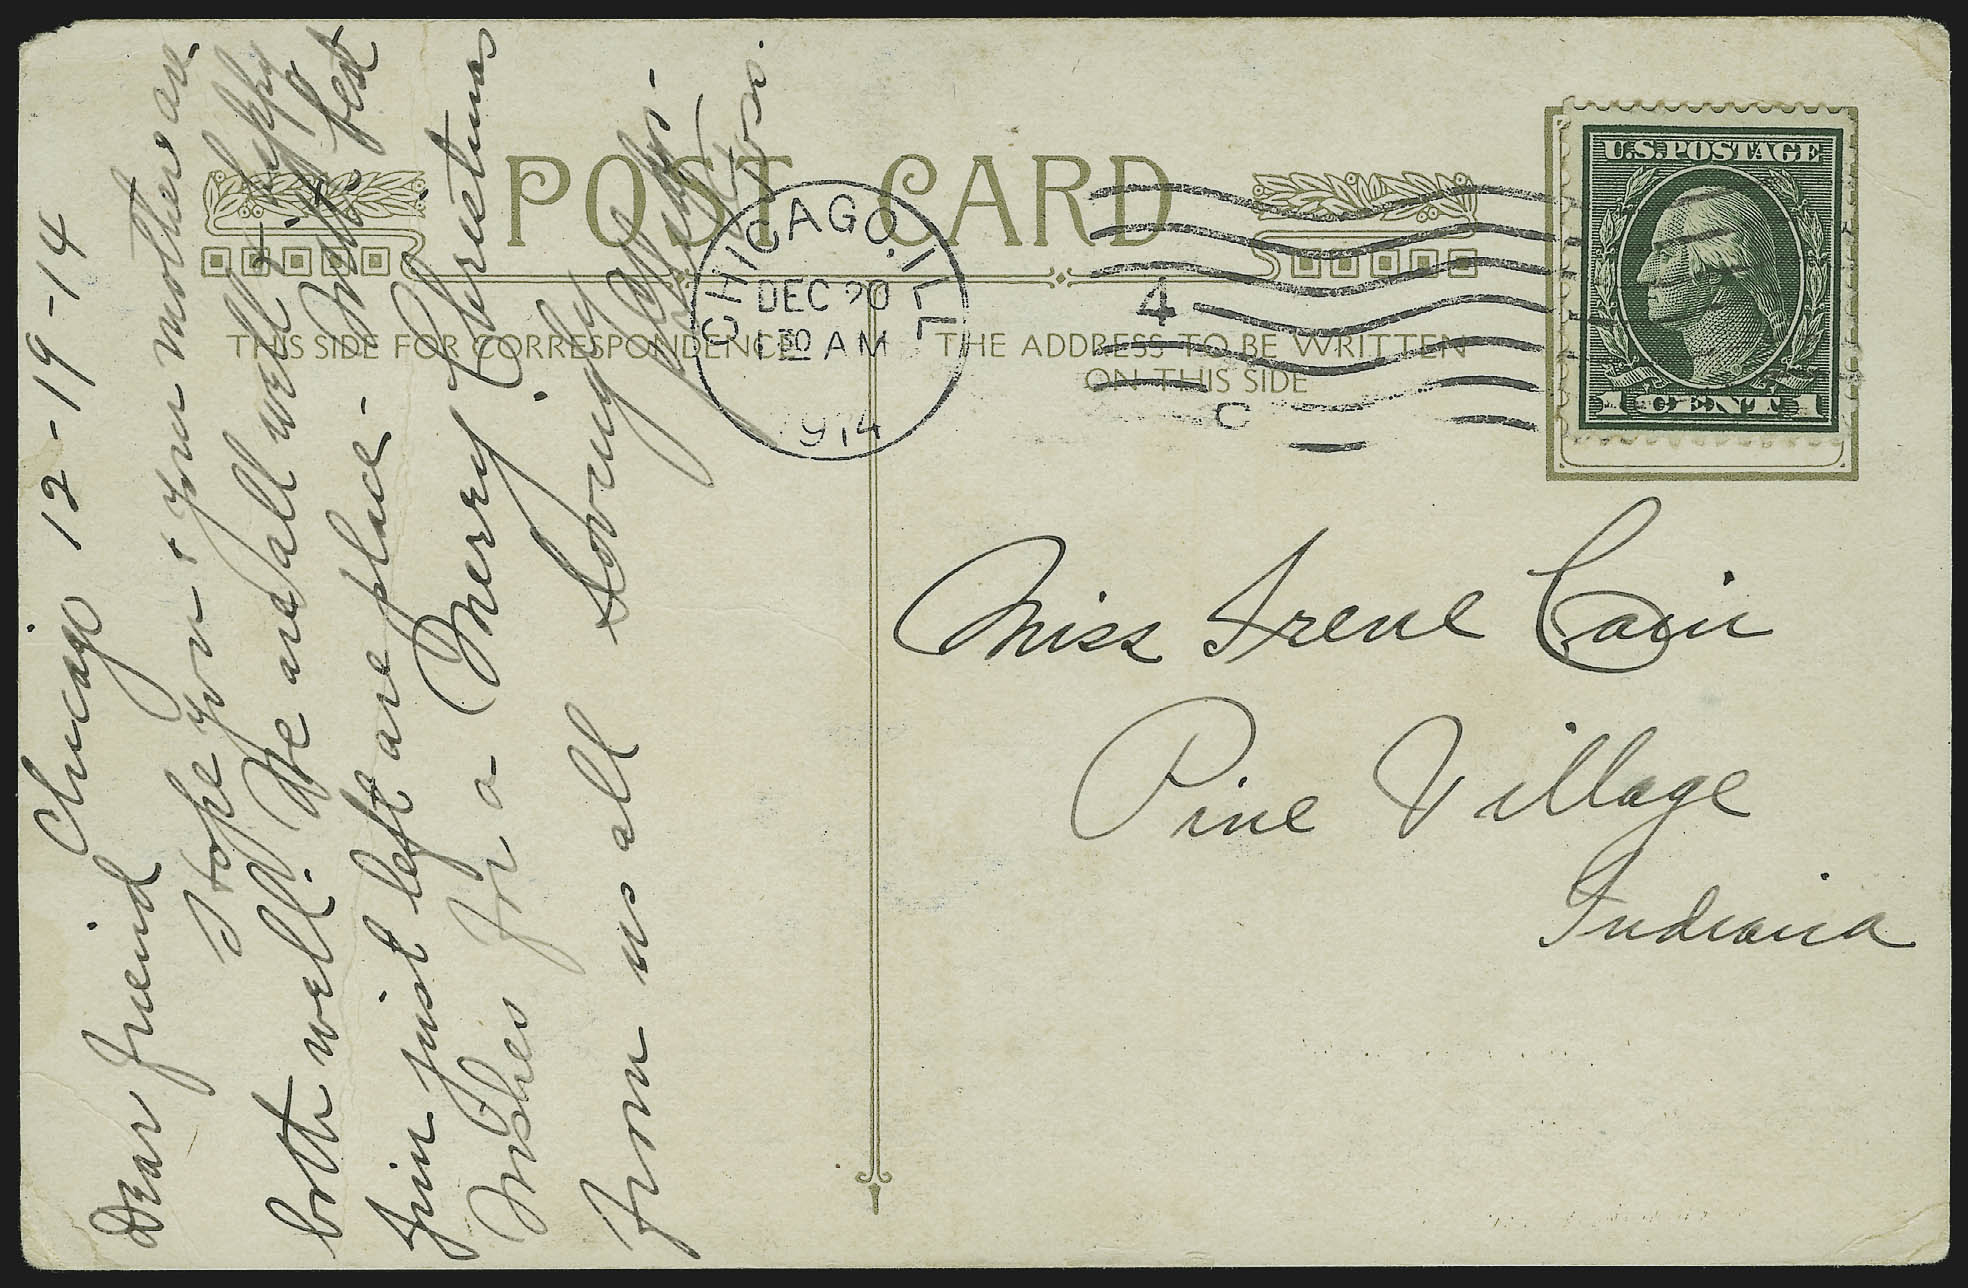 POST CARD
THIS SIDE FOR CORRESPONDENCE
THE ADDRESS TO BE WRITTEN
ON THIS SIDE
CHICAGO, ILL
DEC 20
1 30 AM
1914
4
C
U.S. POSTAGE
1 CENT 1
Chicago 12-19-14
Dear friend
I hope you & your mother are
both well. We are all well & happy
Jim just left are place - With best
Wishes for a Merry Christmas
from us all Lovingly
Miss Irene Cain
Pine Village
Indiana